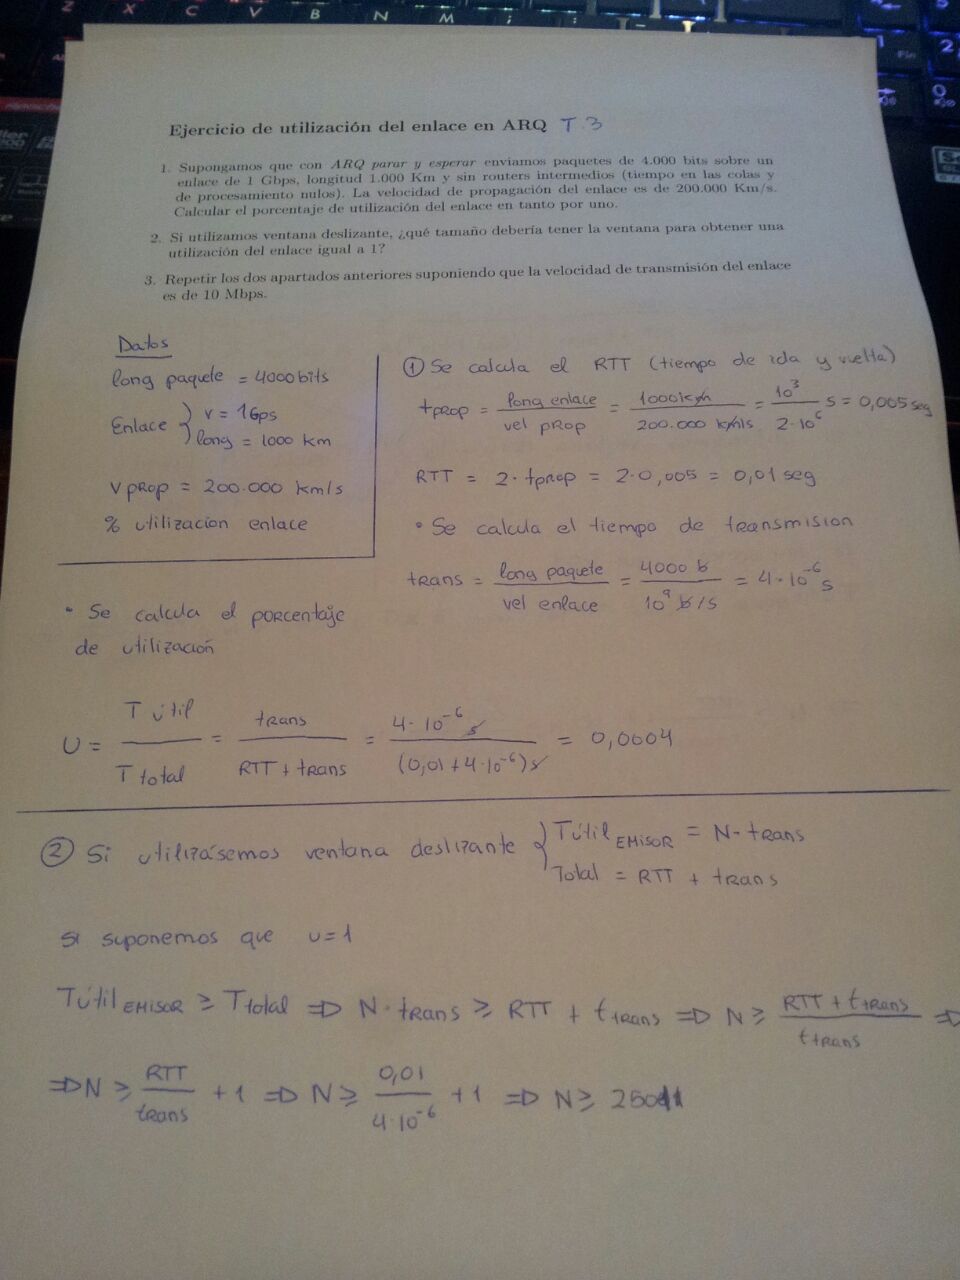 Z X C V B N M ; :
Fin
Ejercicio de utilización del enlace en ARQ T.3
1. Supongamos que con ARQ parar y esperar enviamos paquetes de 4.000 bits sobre un
enlace de 1 Gbps, longitud 1.000 Km y sin routers intermedios (tiempo en las colas y
de procesamiento nulos). La velocidad de propagación del enlace es de 200.000 Km/s.
Calcular el porcentaje de utilización del enlace en tanto por uno.
2. Si utilizamos ventana deslizante, ¿qué tamaño debería tener la ventana para obtener una
utilización del enlace igual a 1?
3. Repetir los dos apartados anteriores suponiendo que la velocidad de transmisión del enlace
es de 10 Mbps.
Datos
long paquete = 4000 bits
Enlace { v = 1Gps
long = 1000 km
v prop = 200.000 km/s
% utilizacion enlace
① Se calcula el RTT (tiempo de ida y vuelta)
tprop = long enlace / vel prop = 1000 km / 200.000 km/s = 10³ / 2·10⁶ s = 0,005 seg
RTT = 2·tprop = 2·0,005 = 0,01 seg
• Se calcula el tiempo de transmision
trans = long paquete / vel enlace = 4000 b / 10⁹ b/s = 4·10⁻⁶ s
• Se calcula el porcentaje
de utilización
U = T útil / T total = trans / RTT + trans = 4·10⁻⁶ s / (0,01 + 4·10⁻⁶) s = 0,0004
② Si utilizásemos ventana deslizante { Tútil EMISOR = N·trans
Total = RTT + trans
si suponemos que u=1
Tútil EMISOR ≥ Ttotal ⇒ N·trans ≥ RTT + ttrans ⇒ N ≥ RTT + ttrans / ttrans ⇒
⇒ N ≥ RTT / trans + 1 ⇒ N ≥ 0,01 / 4·10⁻⁶ + 1 ⇒ N ≥